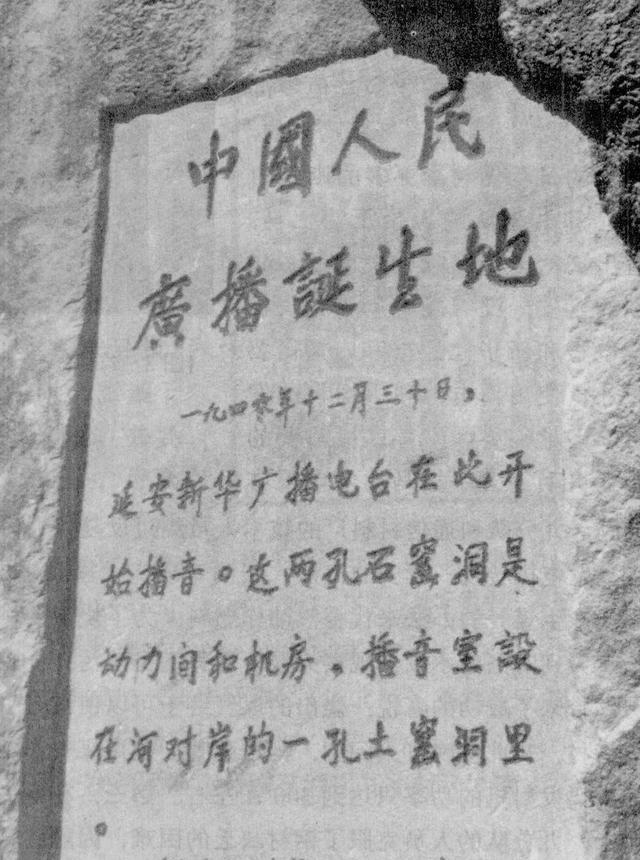 中國人民
廣播誕生地
一九四零年十二月三十日，
延安新华广播电台在此开
始播音。这两孔石窰洞是
动力间和机房，播音室設
在河对岸的一孔土窰洞里
。